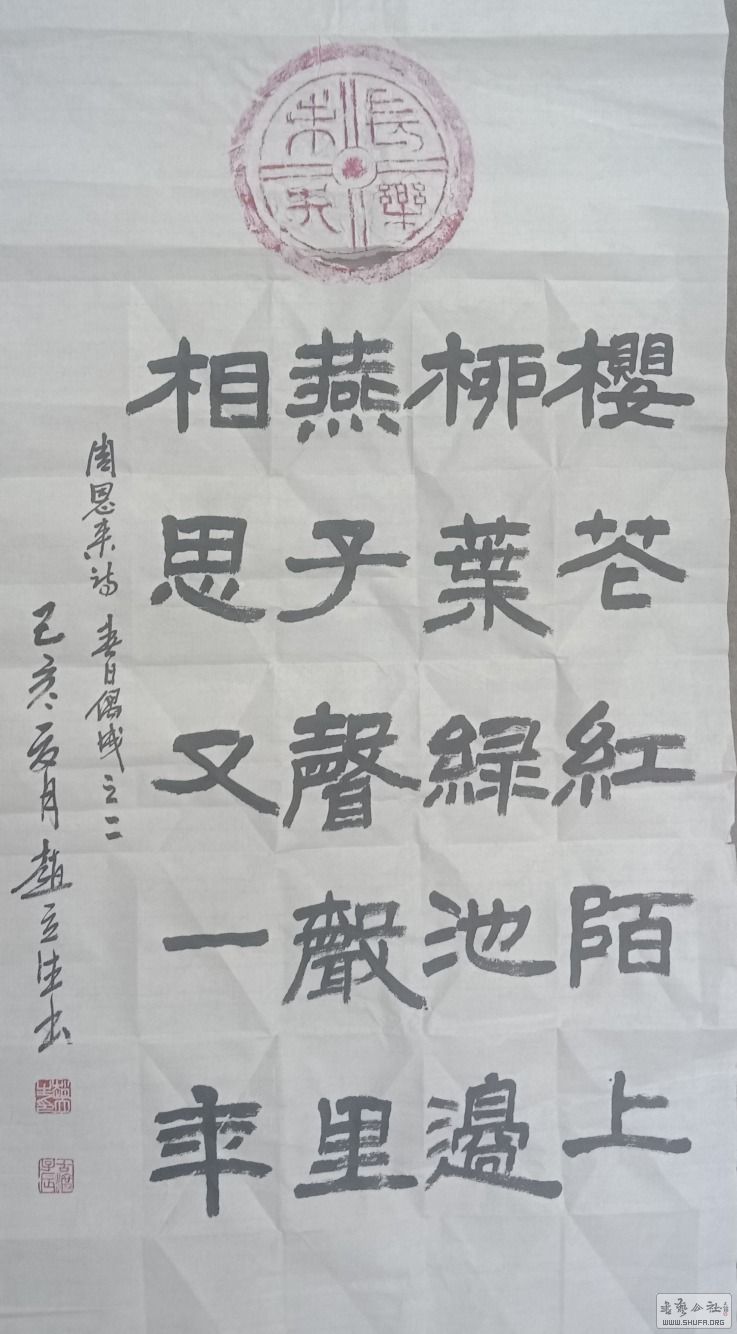 長樂未央
櫻花紅陌上
柳葉綠池邊
燕子聲聲里
相思又一年
周恩來詩 春日偶成之二
己亥夏月趙立生书
书艺公社
WWW.SHUFA.ORG